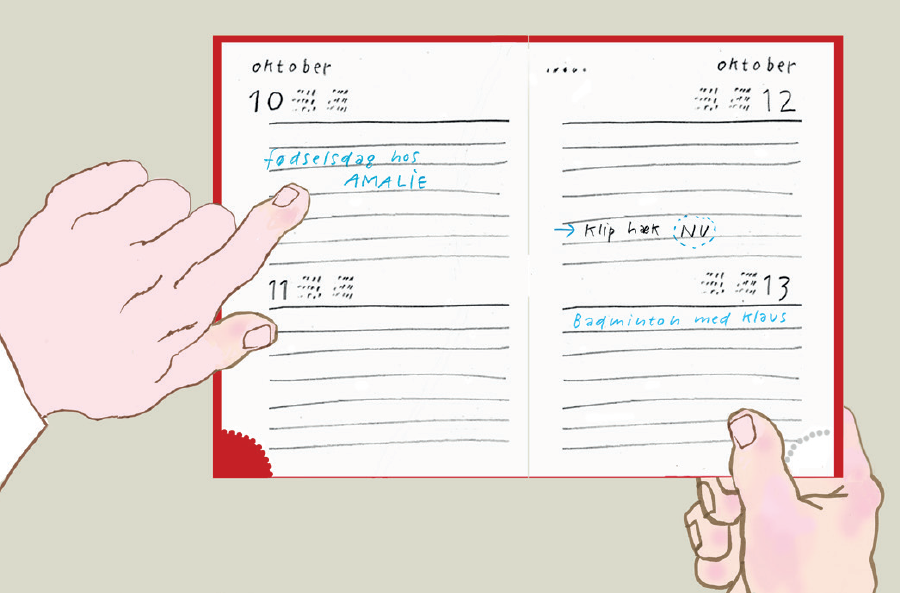 oktober
10
fødselsdag hos
AMALIE
11
oktober
12
→ Klip hæk NU
13
Badminton med Klaus